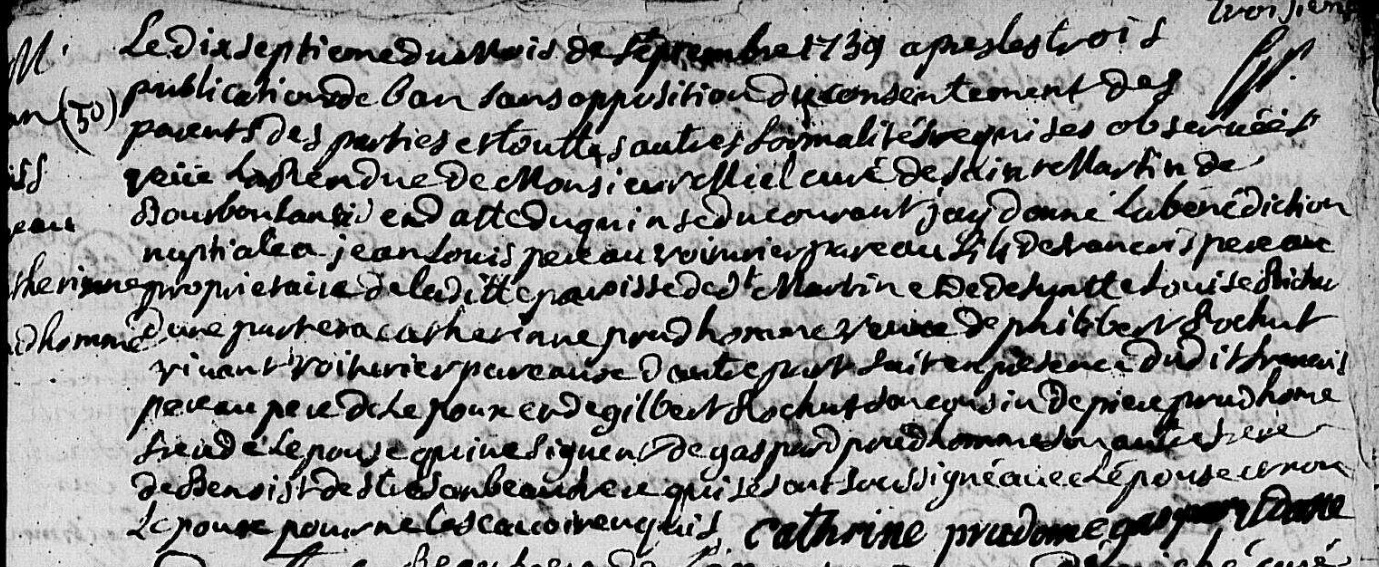 troisieme
M.
Le dix septieme du mois de septembre 1739 apres les trois
publications de ban sans opposition du consentement des
(50)
parents des parties et touttes autres formalités requises observées
veüe la rendue de Monsieur Miel curé de sainte Martin de
Bourbon lanci en datte du quinse du courant jay donné la bénédiction
nuptiale a jean Louis pereau voiturier par eau fils de francois pereau
propriétaire de la ditte paroisse de st Martin et de deffuntte Louise
therinne
d'une part et a catherinne prudhomme veuve de philibert Rochut
dhomme
vivant voiturier par eau de d'autre part fait en presence dudit francois
pereau pere de lepoux et de gilbert Rochut son cousin de piere prudhome
frere de lepouse qui ne signent de gaspard prudhomme son autre frere
de Benoist son beaufrere qui se sont soussigné avec lépouse et non
lepoux pour ne le scavoir enquis Cathrine prudome gaspar